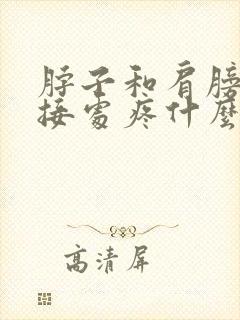 脖子和肩膀
接處疼什麼
高清屏